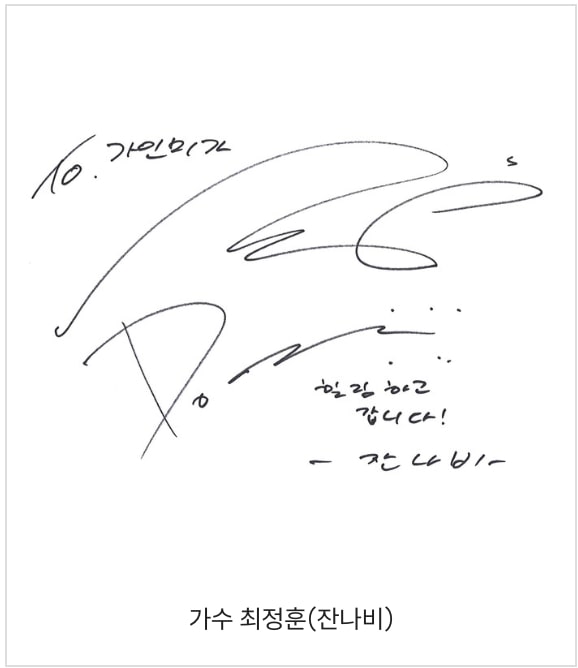 To. 가인미가
힐링하고
갑니다!
- 잔나비 -
가수 최정훈(잔나비)